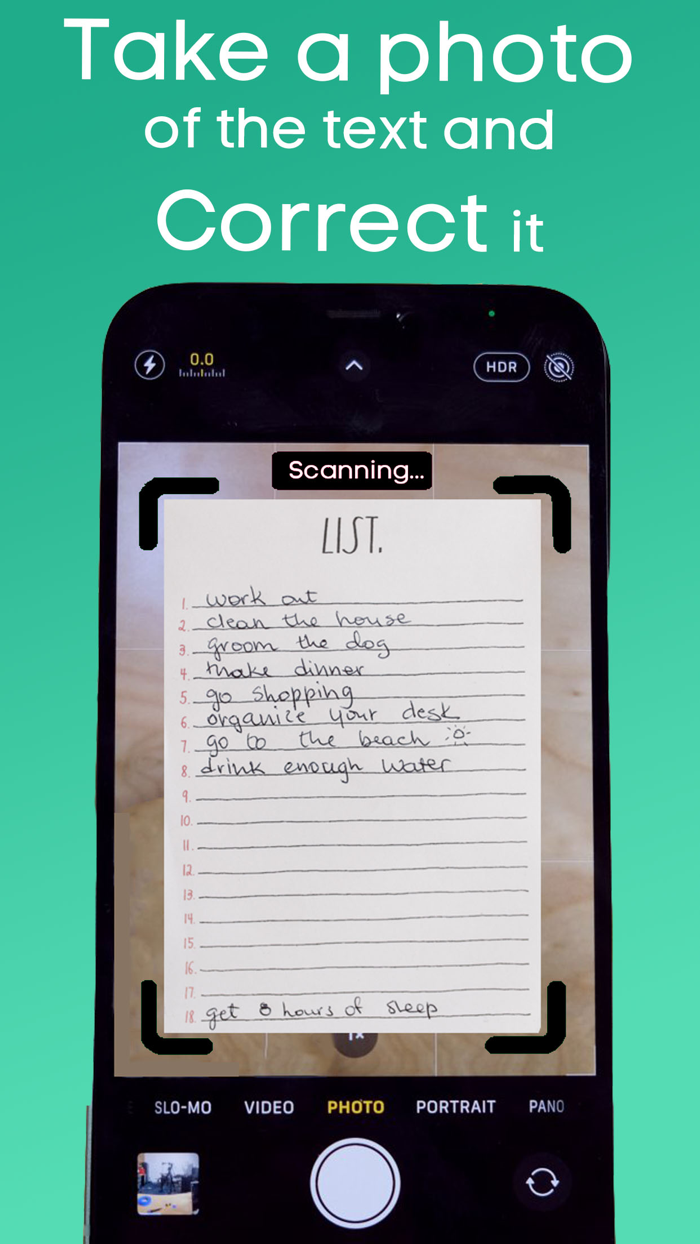 Take a photo
of the text and
Correct it
0.0
HDR
Scanning...
LIST.
1. work out
2. clean the house
3. groom the dog
4. make dinner
5. go shopping
6. organize your desk
7. go to the beach
8. drink enough water
9.
10.
11.
12.
13.
14.
15.
16.
17.
18. get 8 hours of sleep
SLO-MO VIDEO PHOTO PORTRAIT PANO